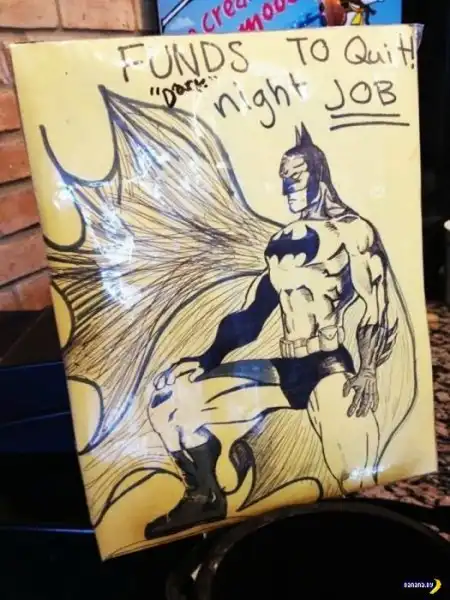 cream
mood
FUNDS TO Quit!
"Dark" night JOB
banana.by